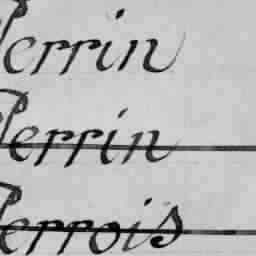 Perrin
Perrin
Perrois